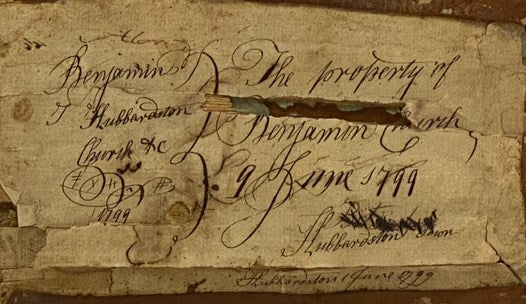 Benjamin
Hubbardston
Church &c
1799
The property of
Benjamin Church
9 June 1799
Hubbardston Town
Hubbardston June 1799